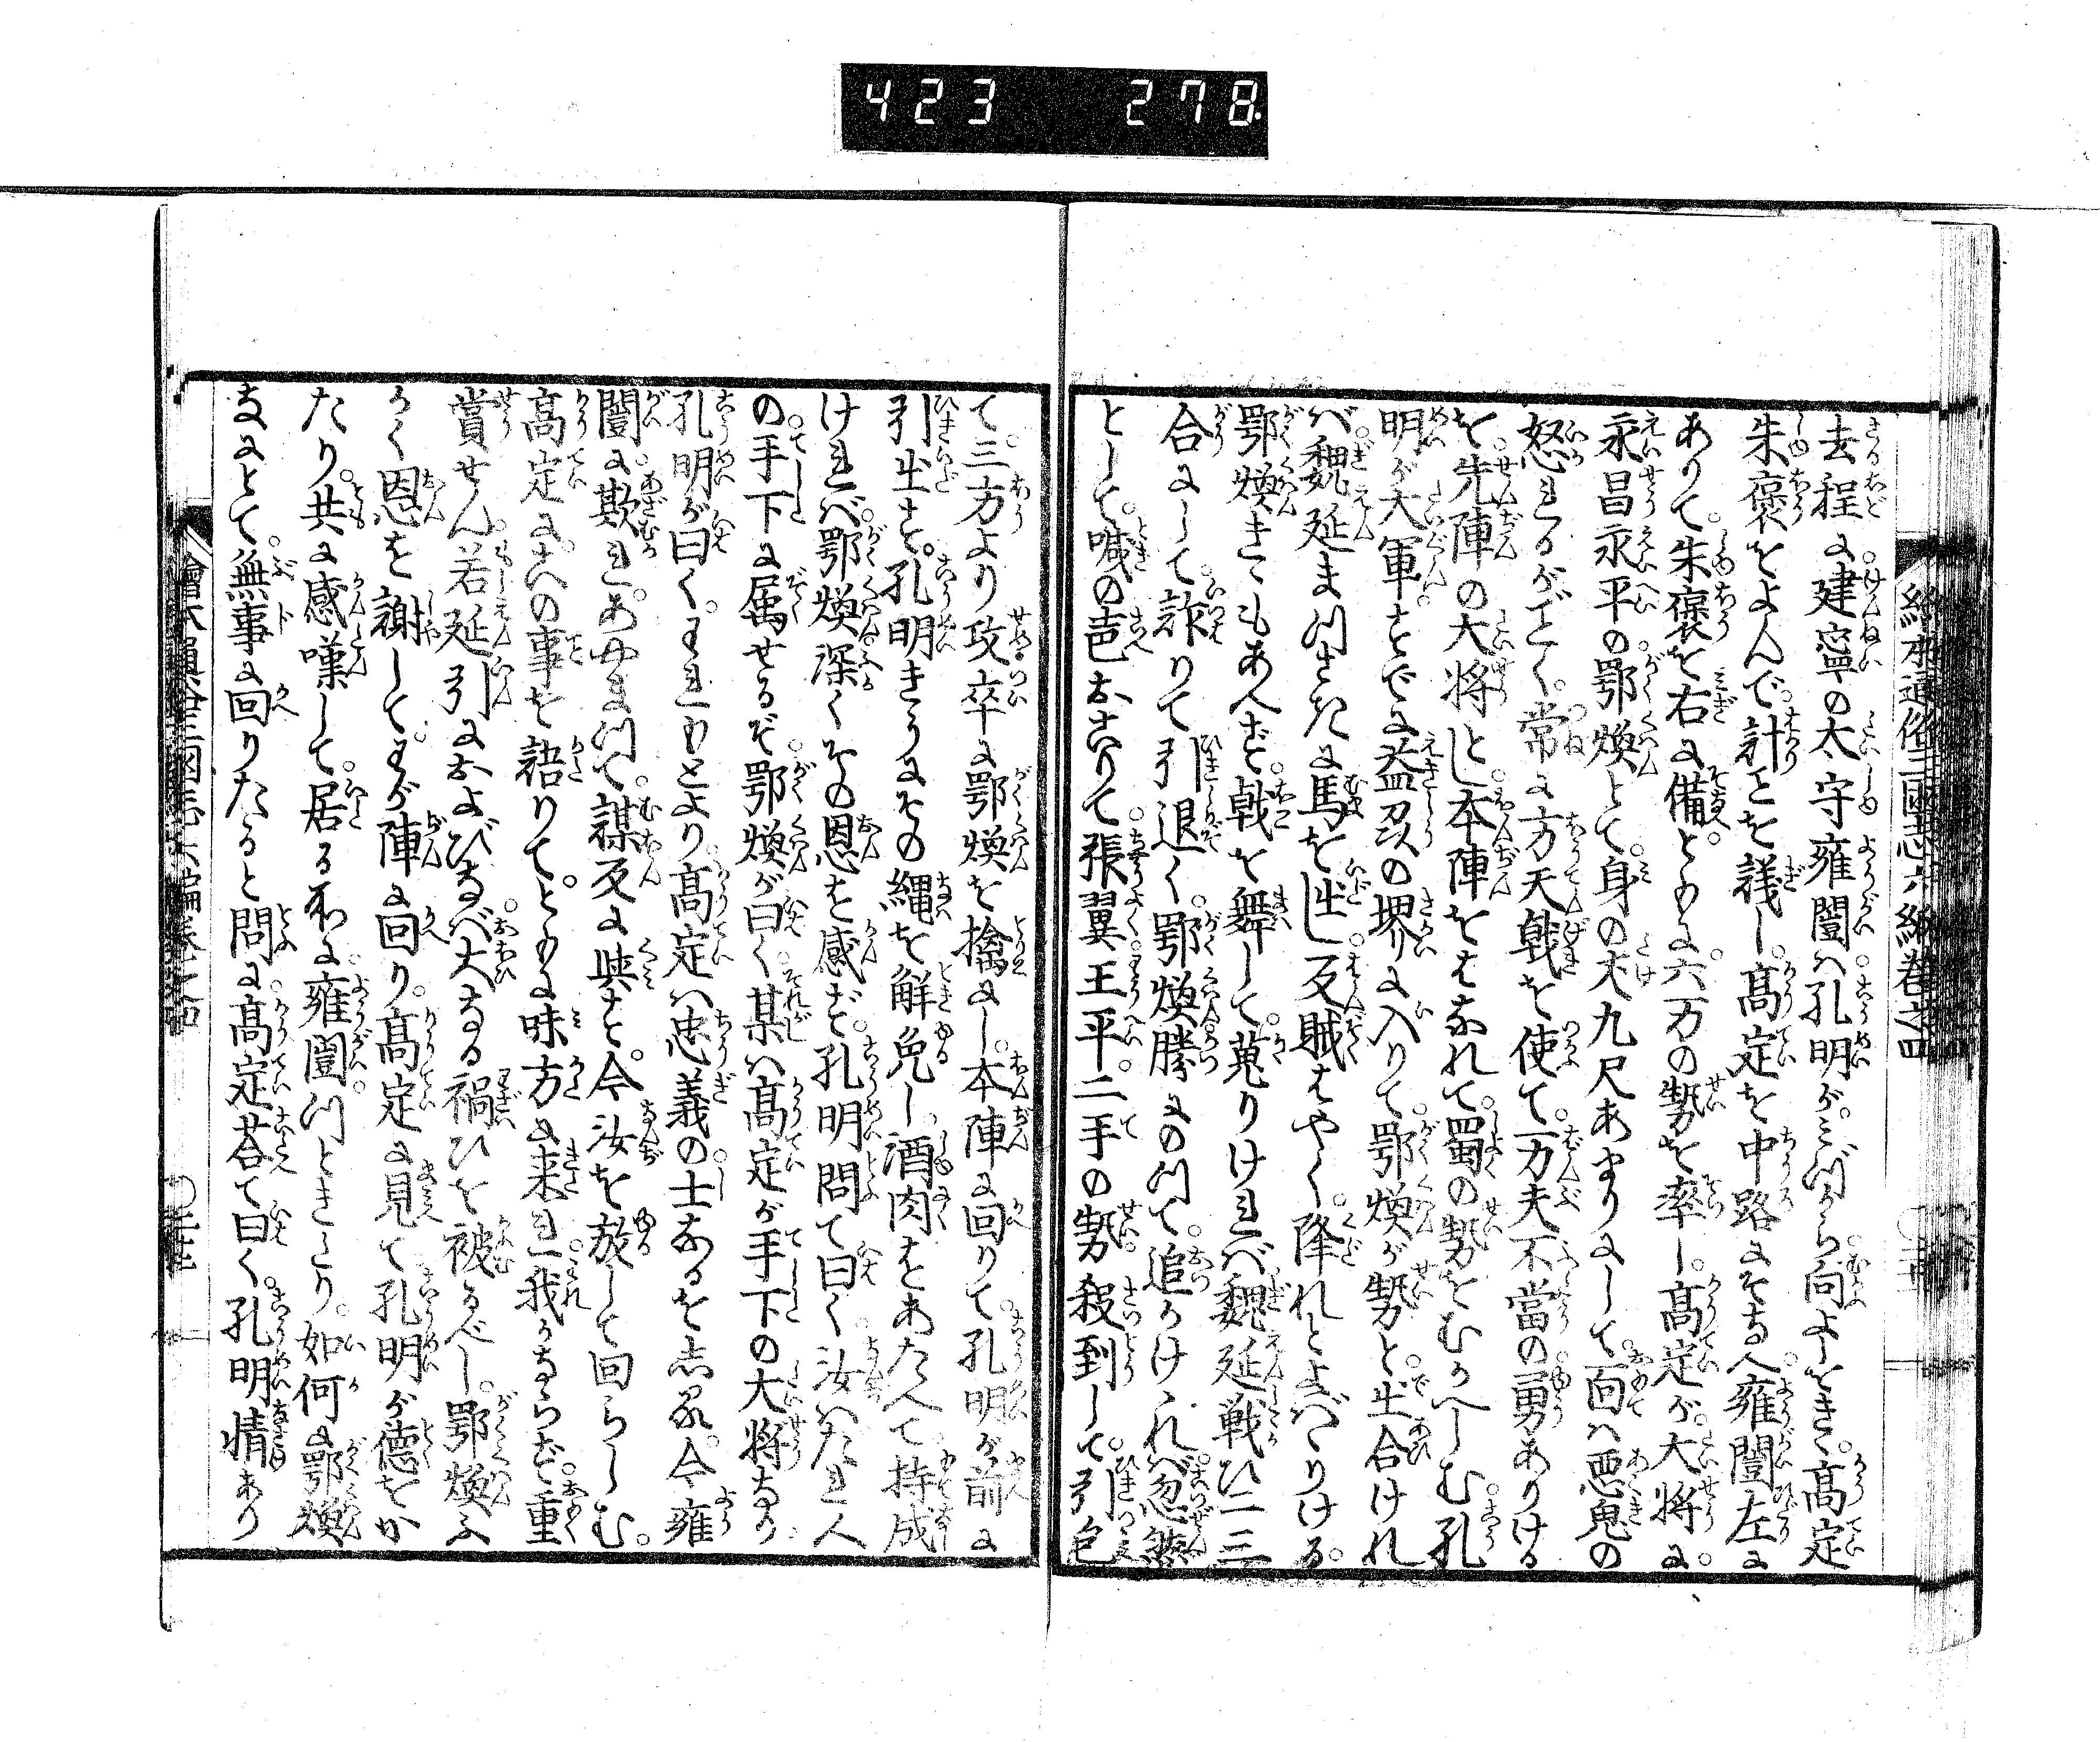 423 278
去程に建寧の太守雍闓ハ孔明がミづから向ふよしをきゝ高定
朱褒をよんで計ごとを議し。高定を中路にそなへ雍闓左に
ありて。朱褒を右に備。ともに六万の勢を率し。高定が大将に。
永昌永平の鄂煥とて。身の丈九尺あまりにして。面ハ悪鬼の
怒れるがごとく。常に方天戟を使て。万夫不當の勇ありける
を。先陣の大将とし本陣をはなれて。蜀の勢をむかへしむ孔
明が大軍すでに益州の堺に入りて。鄂煥が勢と出合けれ
ば魏延まつさきに馬を出し。反賊はやく降れとよばゝりける。
鄂煥きゝもあへず。戟を舞して。蒐りければ魏延戦ひ二三
合にして詐りて引退く。鄂煥勝にのつて。追かけゝれば忽然
として。喊の声おこりて張翼王平。二手の勢殺到して。引包
て。三方より攻卒に鄂煥を擒にし。本陣に回りて。孔明が前に
引出す。孔明きうにその縄を解免し。酒肉をあたへて持成
ければ。鄂煥深くその恩を感ず。孔明問て曰く汝ハたれ人
の手下に属せるぞ。鄂煥が曰く某ハ高定が手下の大将なり
孔明が曰く。われもとより高定ハ忠義の士なるを志る。今雍
闓に欺れ。あやまつて謀反に與す。今汝を放して回らしむ。
高定にこの事を語りて。ともに味方に来れ。我かならず。重
賞せん。若延引におよびなバ大なる禍ひを被るべし。鄂煥ふ
かく恩を謝して。わが陣に回り。高定に見て孔明が徳をか
たり。共に感嘆して。居る所に。雍闓つときたり。如何に鄂煥
なにとて無事に回りたると問に高定荅て曰く。孔明情あり